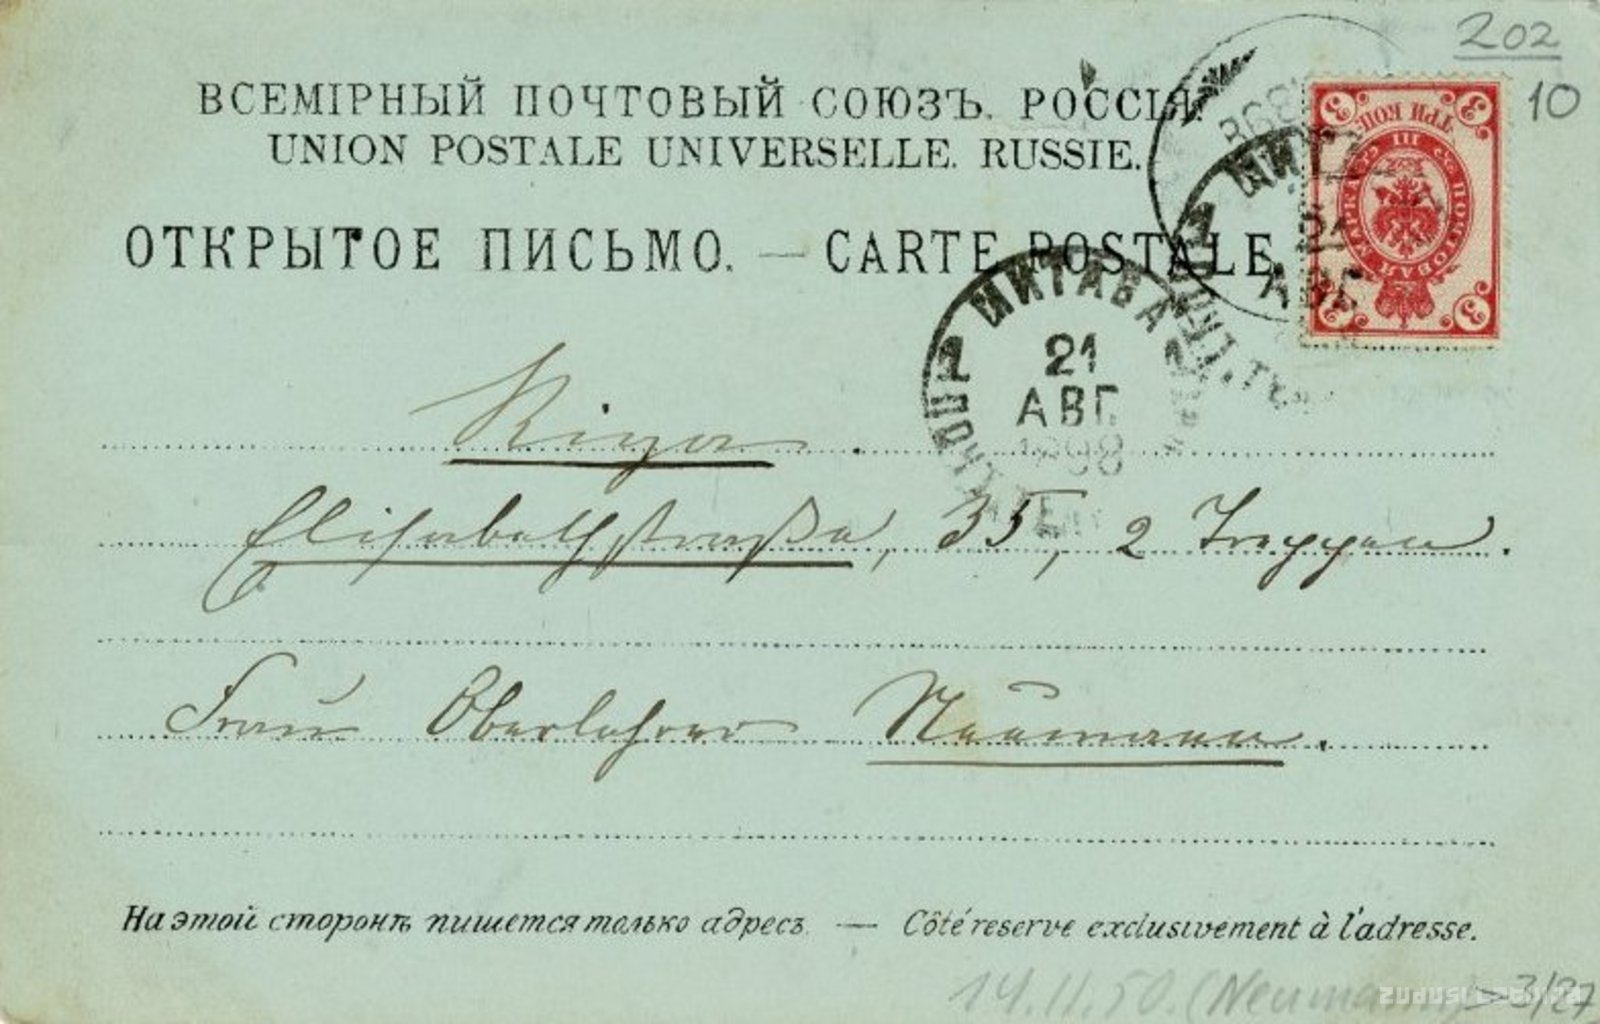 202
10
ВСЕМІРНЫЙ ПОЧТОВЫЙ СОЮЗЪ. РОССІЯ.
UNION POSTALE UNIVERSELLE. RUSSIE.
ОТКРЫТОЕ ПИСЬМО. — CARTE POSTALE.
3 ТРИ КОП. 3
ПОЧТОВАЯ МАРКА
3 3
МИТАВА
21
АВГ
1 МИТАВА 1
21
АВГ
1898
Riga.
Elisabethstraße, 35, 2 Treppen.
Frau Oberlehrer Neumann.
На этой сторонѣ пишется только адресъ. — Côté reservé exclusivement à l'adresse.
14.11.50. (Neumann)
ZUDUSI LATVIJA
3/27